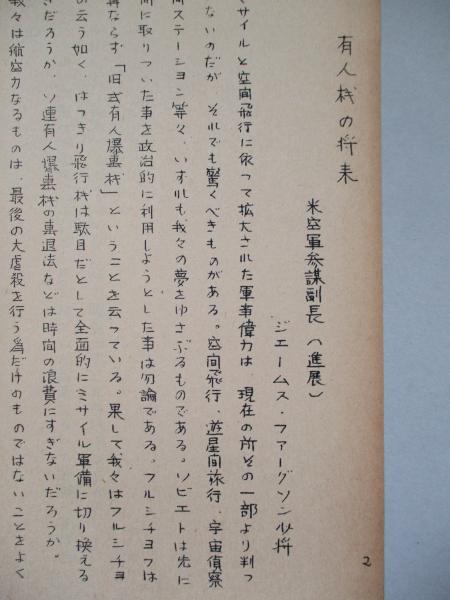 有人機の将来
米空軍参謀副長（進展）
ジエームス・フアーグソン少将
サイルと空間飛行に依って拡大された軍事偉力は、現在の所その一部より判っ
ないのだが それでも驚くべきものがある。空間飛行、遊星間旅行、宇宙偵察
間ステーション等々、いずれも我々の夢をゆさぶるものである。ソビエトは先に
間に取りついた事を政治的に利用しようとした事は勿論である。フルシチョフは
再ならず「旧式有人爆撃機」ということを云っている。果して我々はフルシチョ
の云う如く、はっきり飛行機は駄目だとして全面的にミサイル軍備に切り換える
きだろうか、ソ連有人爆撃機の撃退法などは時間の浪費にすぎないだろうか。
我々は航空力なるものは、最後の大虐殺を行う為だけのものではないことをよく
2